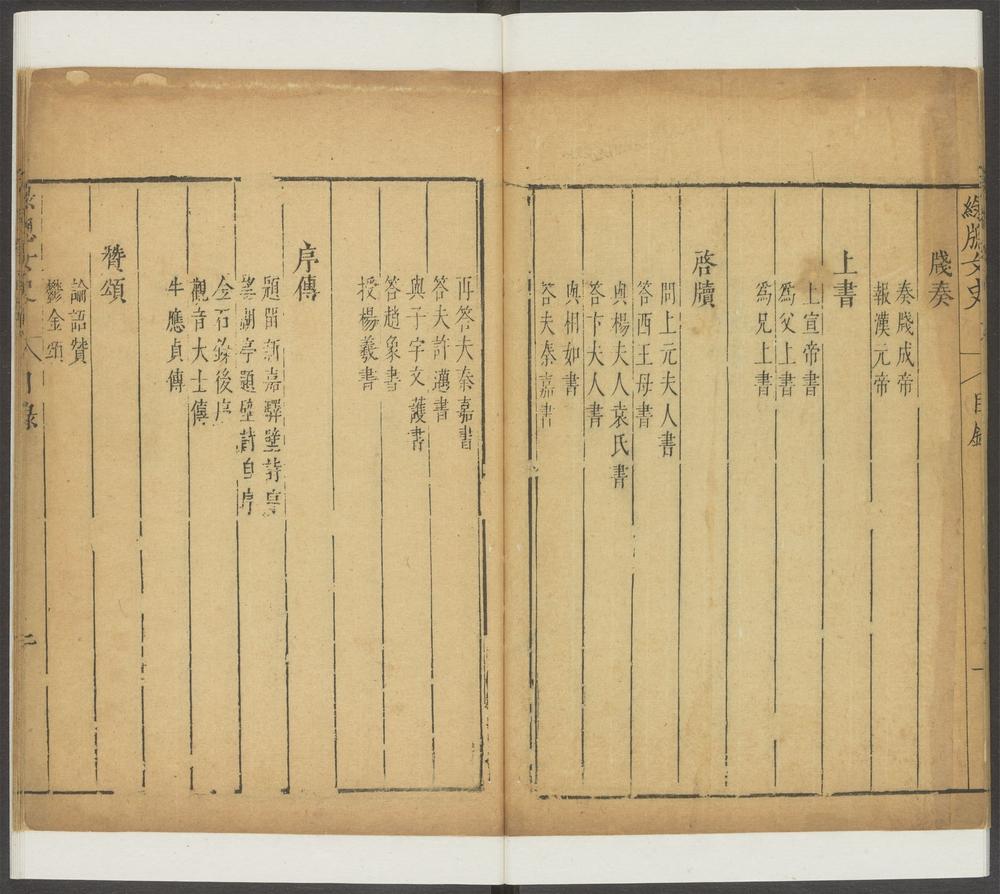 牋奏
奏牋成帝
報漢元帝
上書
上宣帝書
為父上書
為兄上書
啓牘
問上元夫人書
答西王母書
與楊夫人袁氏書
答卞夫人書
與相如書
答夫秦嘉書
再答夫秦嘉書
答夫許邁書
與子宇文護書
答趙象書
授楊羲書
序傳
題畱新嘉驛壁詩序
蘭湖亭題壁詩自序
金石錄後序
觀音大士傳
牛應貞傳
贊頌
論語贊
鬱金頌
目錄
二